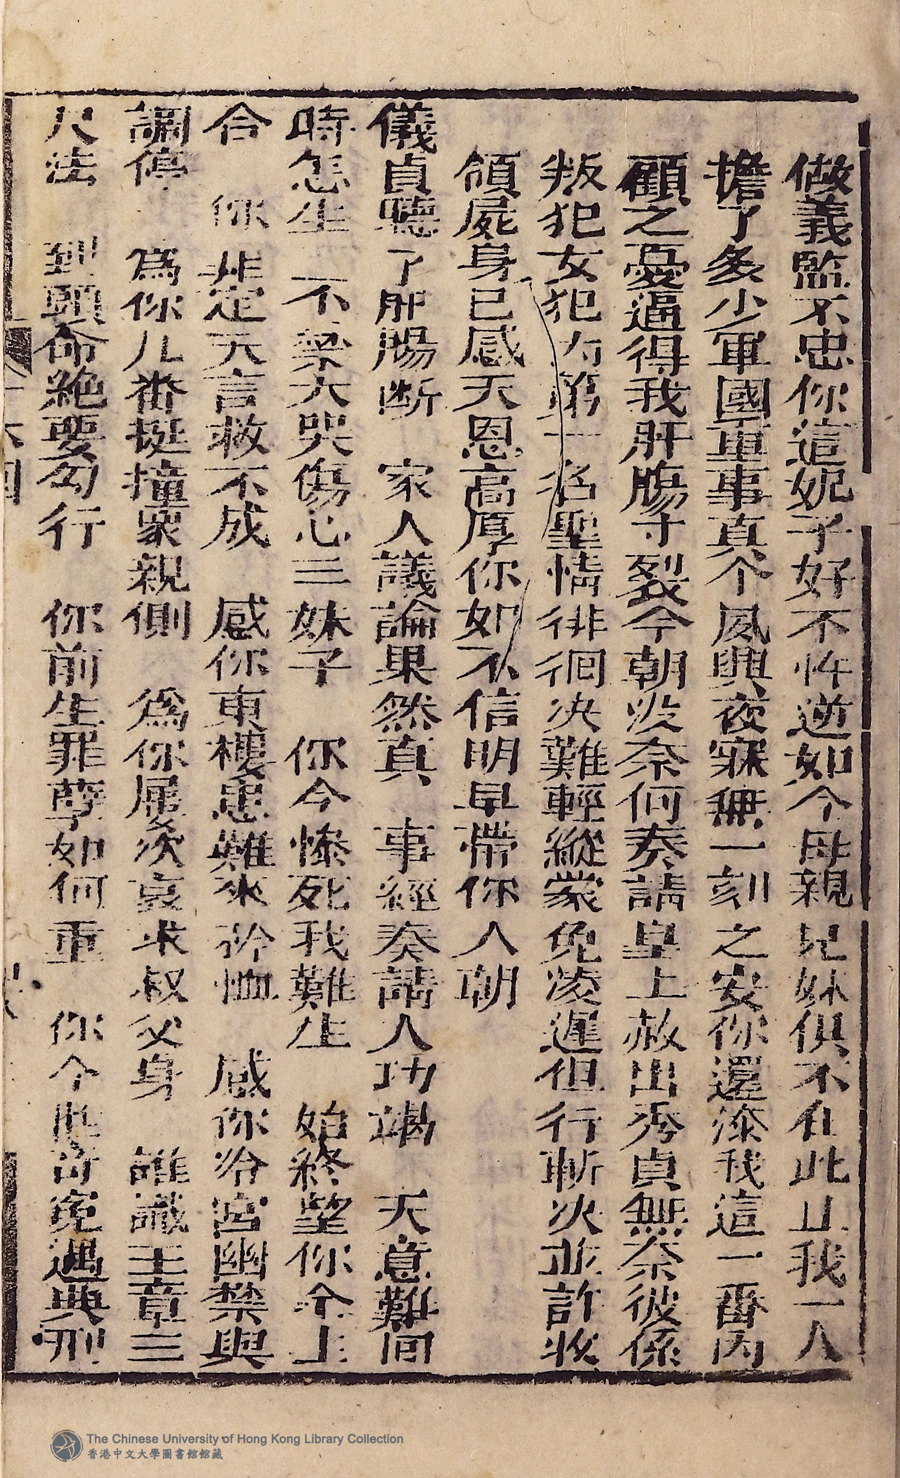 做義監不忠你這妮子好不忤逆如今母親兄妹俱不在此止我一人
擔了多少軍國重事真个夙興夜寐無一刻之安你還添我這一番內
顧之憂逼得我肝腸寸裂今朝没奈何奏請皇上赦出秀貞無奈彼係
叛犯女犯内第一名聖情徘徊决難輕縱蒙免凌遲但行斬决並許收
領屍身已感天恩高厚你如不信明早帶你入朝
儀貞聽了肝腸断 家人議論果然真 事經奏請人功竭 天意難回
時怎生 不禁大哭傷心三妹子 你今慘死我難生 始終望你全上
合 你非定天言救不成 感你東樓患難來矜恤 感你冷宮幽禁與
調停 爲你几番挺撞衆親側 爲你屡次哀求叔父身 誰識王章三
尺法 到頭命絶要勾行 你前生罪孽如何重 你今世奇寃遇典刑
The Chinese University of Hong Kong Library Collection
香港中文大學圖書館館藏